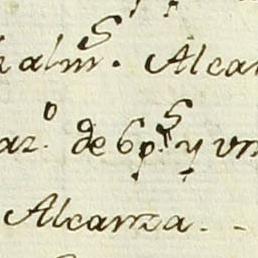 almˢ. Alcan
arº. de 6 pˢ y un
Alcanza.